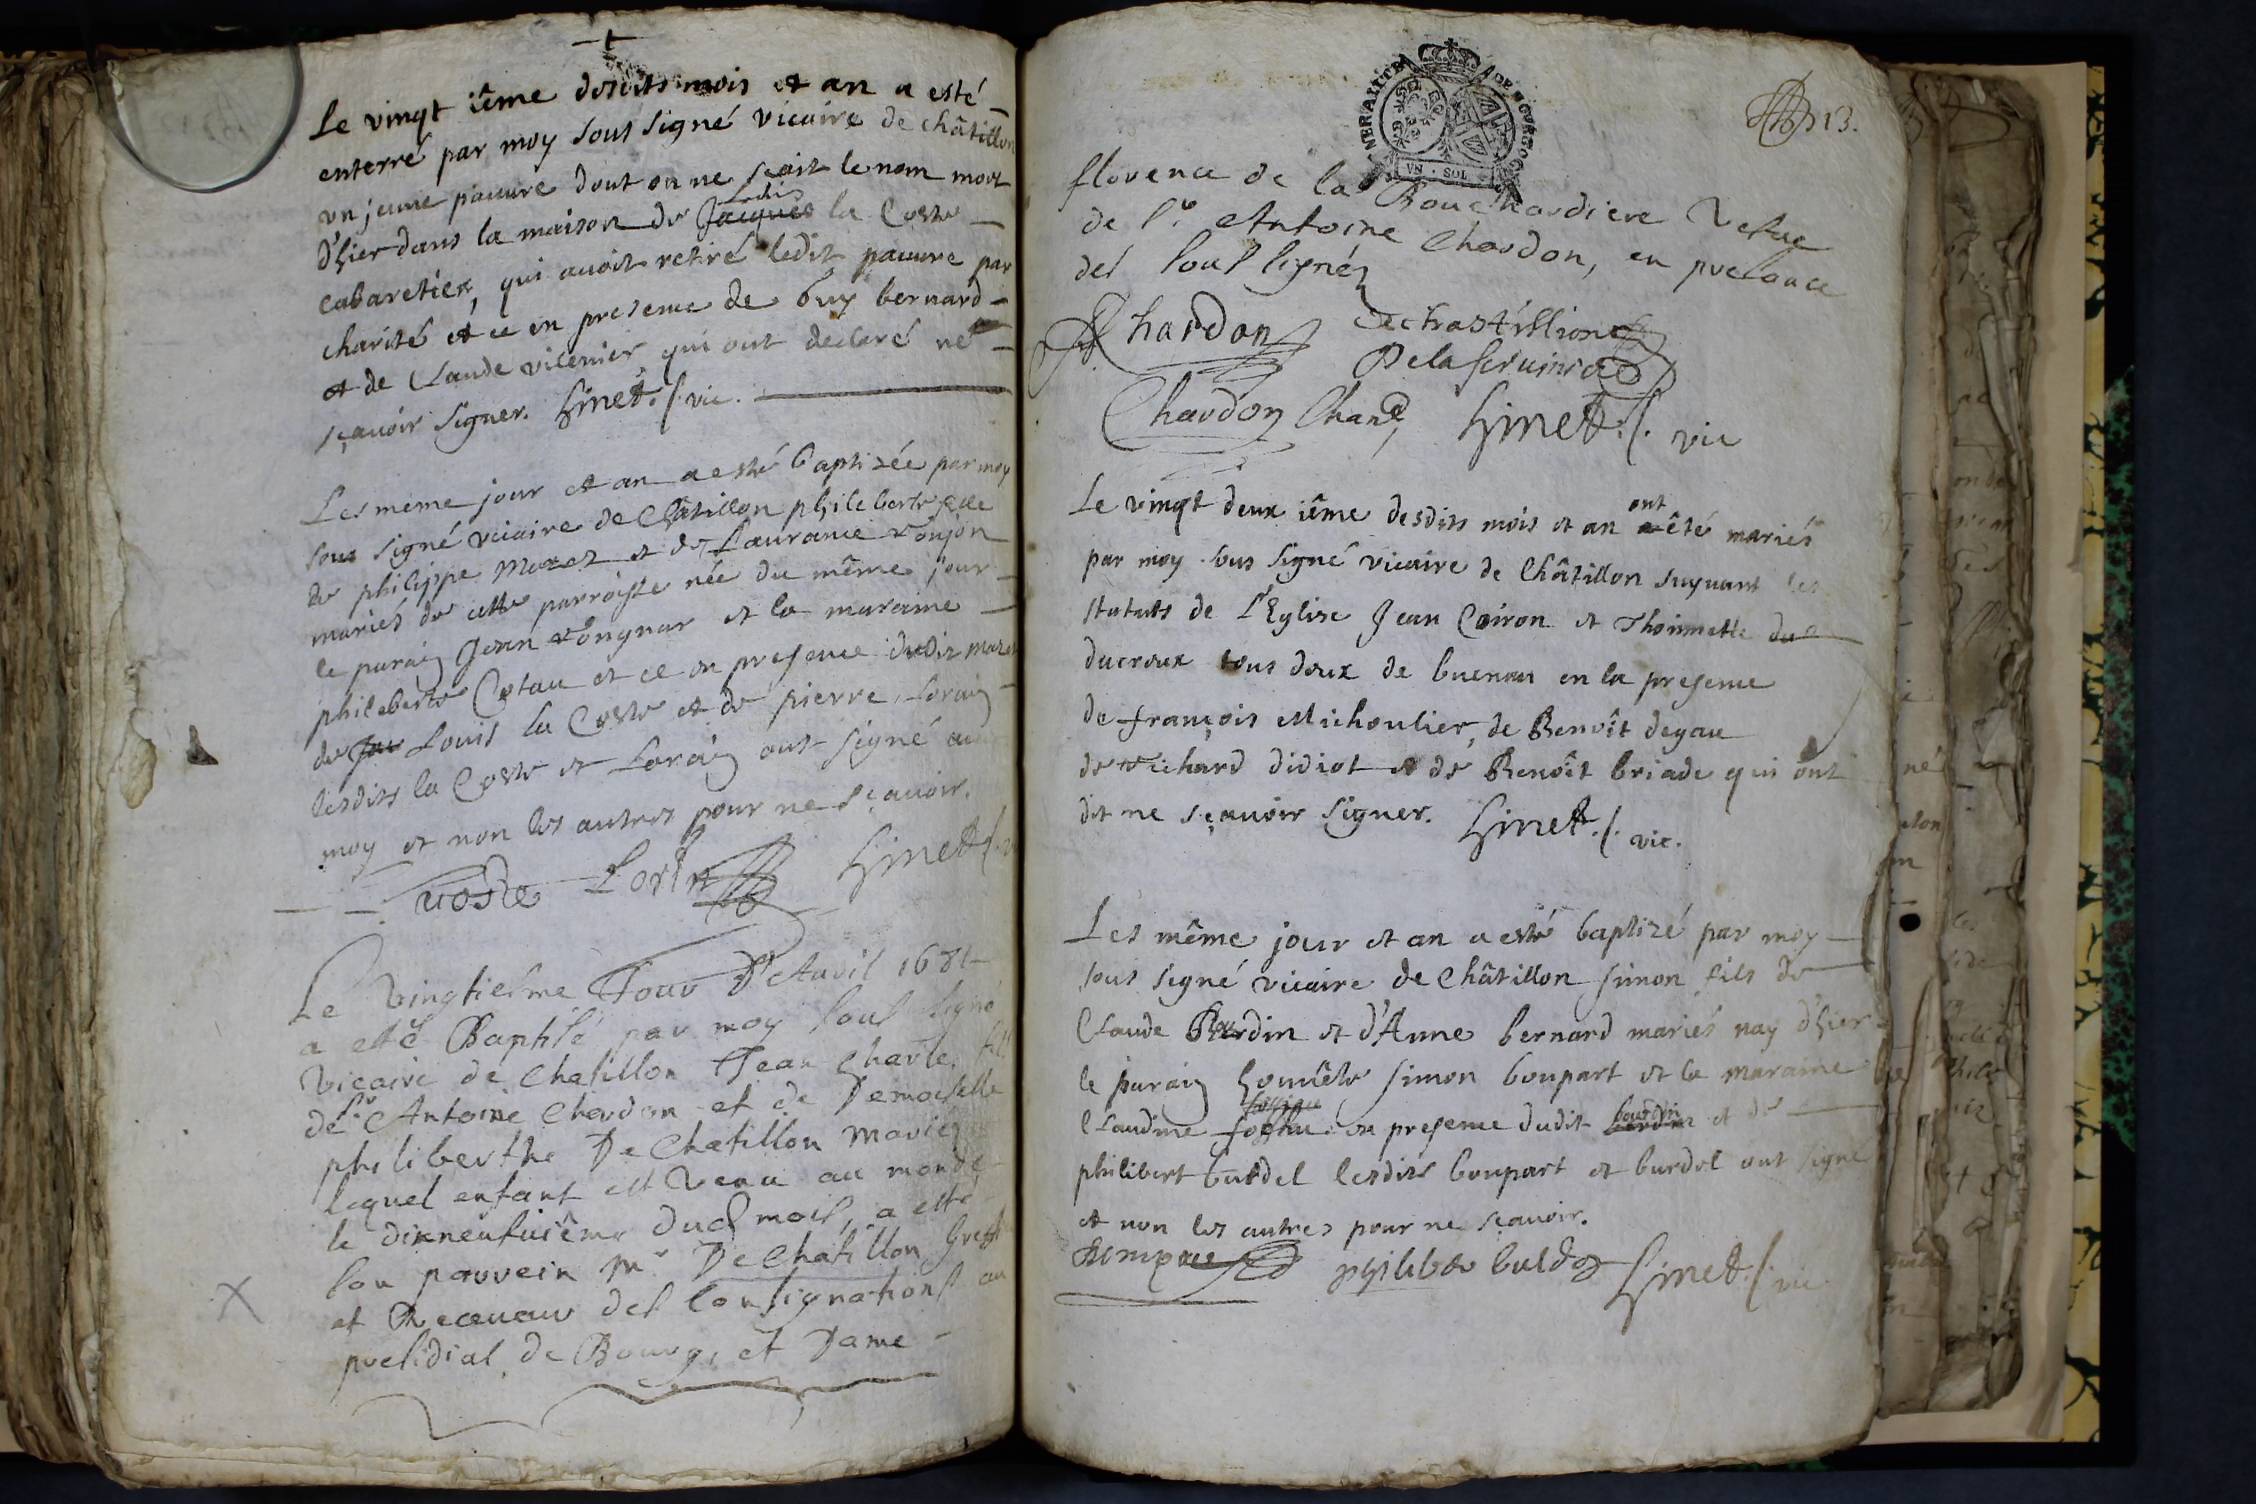 Le vingt iême desdits mois et an a esté
enterré par moy sous signé vicaire de châtillon
un jeune pauure dont on ne sçait le nom mort
d'hier dans la maison de Jacques la Coste
cabaretier, qui auoit retiré ledit pauure par
charité et ce en presence de guy bernard
et de Claude vilenier qui ont declaré ne
sçauoir signer. Ginet. f. vic.
Les meme jour et an a esté baptizée par moy
sous signé vicaire de Châtillon philiberte fille
de philippe Morel et de Laurance
mariés de cette parroisse née du même jour
le parain Jean et la maraine
philiberte Cotau et ce en presence dudit
de Louis la Coste et de pierre Lorain
lesdits la Coste et Lorain ont signé auec
moy et non les autres pour ne sçauoir.
coste Lorin Ginet f.
Le vingtiesme Jour D'Auril 1681
a esté Baptisé par moy sous signé
Vicaire de Chatillon Jean Charle fils
de Sr Antoine Chardon et de Demoiselle
philiberthe De Chatillon mariez
lequel enfant est venu au monde
le dixneufuiême dud mois, a esté
son parrein Mr De Chatillon Greff
et Receueur des Consignations au
presidial de Bourg, et Dame
GENERALITE DE BOURGOG
VN · SOL
13.
florence de la Bouchardiere Vefue
de Sr Antoine Chardon, en presance
des sous signéz
Chardon Dechastillion
Chardon Ginet. f. vic
Le vingt deux iême desdits mois et an ont été mariés
par moy sous signé vicaire de Châtillon suyuant les
statuts de L'Eglise Jean Coiron et Thoinnette du
ducroux tous deux de buenau en la presence
de françois Michoulier, de Benoît degau
de Richard didiot et de Benoît briade qui ont
dit ne sçauoir signer. Ginet. f. vic.
Les même jour et an a esté baptizé par moy
sous signé vicaire de Châtillon simon fils de
Claude Bourdin et d'Anne bernard mariés nay d'hier
le parain honnête simon boupart et la maraine
Claudine en presence dudit bourdin et de
philibert burdel lesdits boupart et burdel ont signé
et non les autres pour ne sçauoir.
philiber burdel Ginet. f. vic